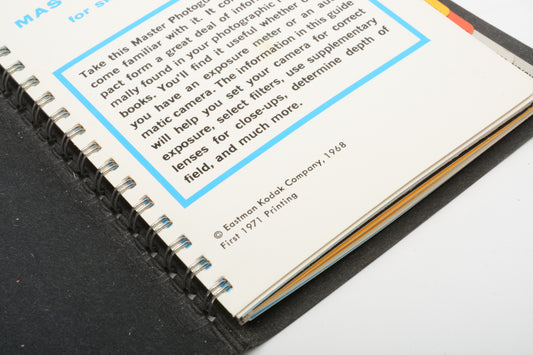 MAS
for s
Take this Master Photog
come familiar with it. It co
pact form a great deal of infor
mally found in your photographic
books. You'll find it useful whether
you have an exposure meter or an au
matic camera. The information in this guide
will help you set your camera for correct
exposure, select filters, use supplementary
lenses for close-ups, determine depth of
field, and much more.
© Eastman Kodak Company, 1968
First 1971 Printing